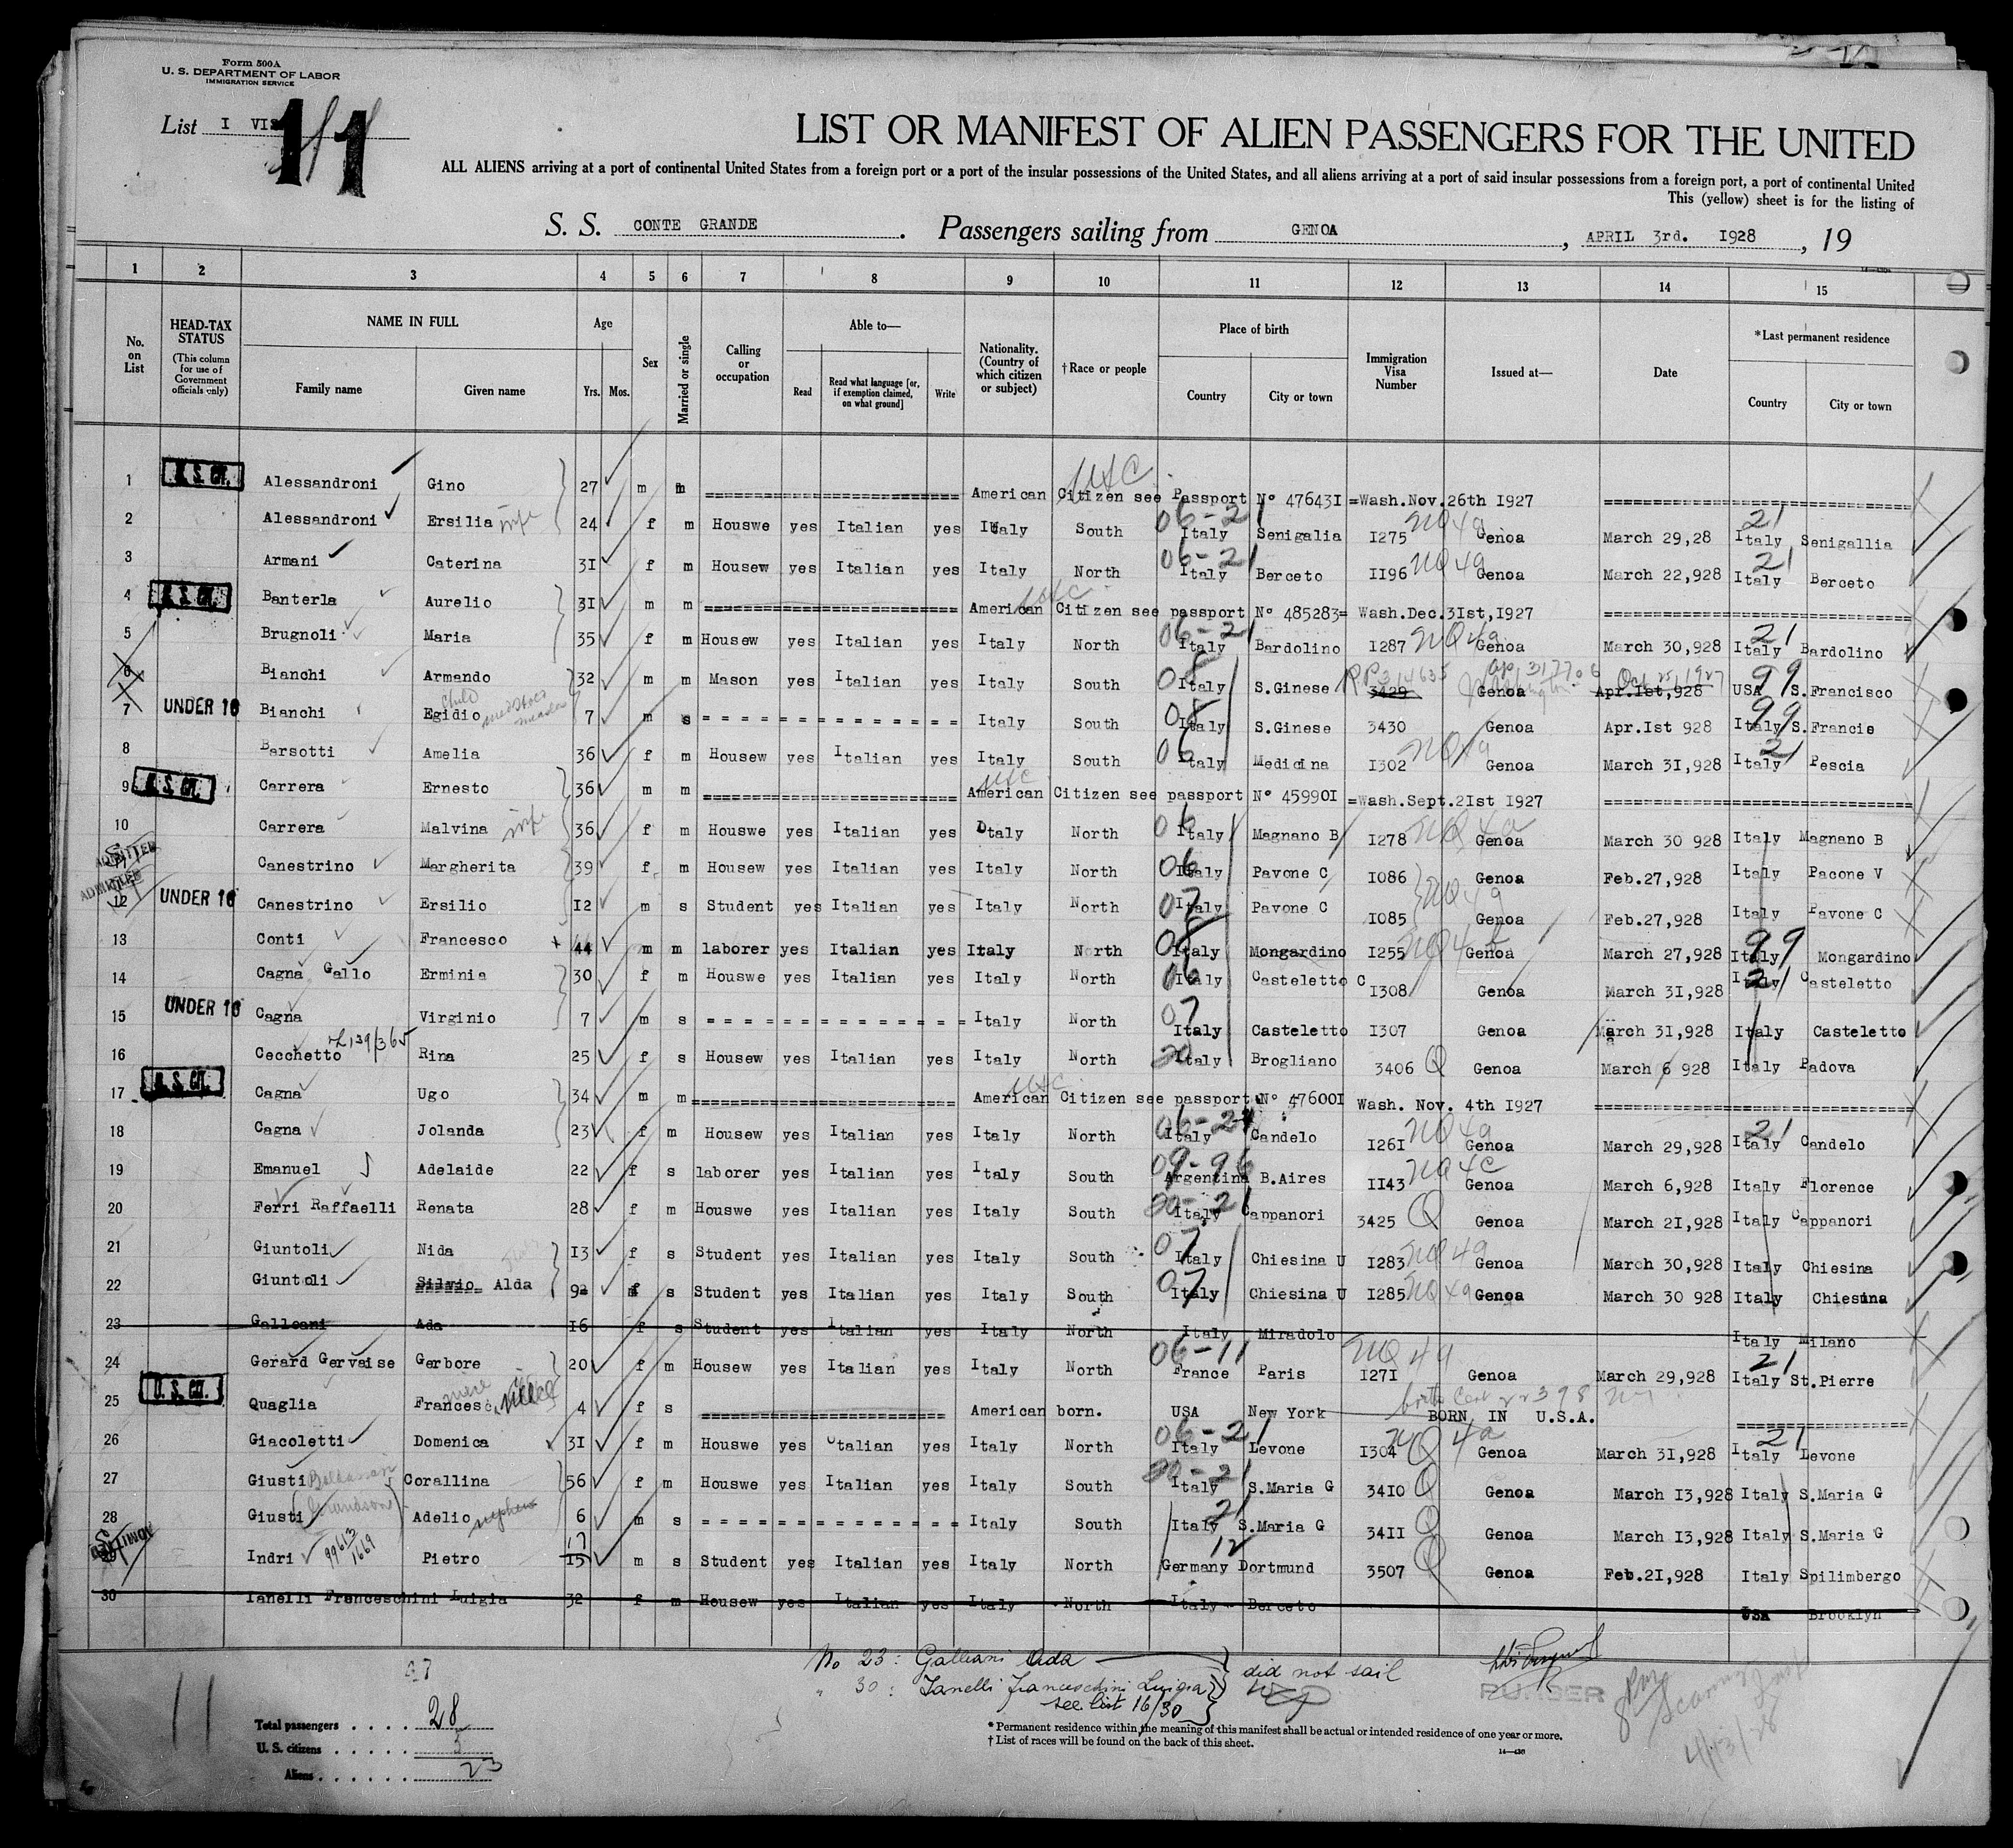 Form 500A
U. S. DEPARTMENT OF LABOR
IMMIGRATION SERVICE
List I VIS
11
LIST OR MANIFEST OF ALIEN PASSENGERS FOR THE UNITED
ALL ALIENS arriving at a port of continental United States from a foreign port or a port of the insular possessions of the United States, and all aliens arriving at a port of said insular possessions from a foreign port, a port of continental United
This (yellow) sheet is for the listing of
S. S. CONTE GRANDE. Passengers sailing from GENOA, APRIL 3rd. 1928, 19
1 2 3 4 5 6 7 8 9 10 11 12 13 14 15
No. on List
HEAD-TAX STATUS (This column for use of Government officials only)
NAME IN FULL
Family name Given name
Age
Yrs. Mos.
Sex
Married or single
Calling or occupation
Able to—
Read Read what language [or, if exemption claimed, on what ground] Write
Nationality. (Country of which citizen or subject)
†Race or people
Place of birth
Country City or town
Immigration Visa Number
Issued at—
Date
*Last permanent residence
Country City or town
1 U.S. CIT. Alessandroni Gino 27 m m American Citizen see Passport N° 476431 =Wash.Nov.26th 1927 USC
2 Alessandroni Ersilia wife 24 f m Houswe yes Italian yes Italy South 06-21 Italy Senigalia 1275 NQ 4a Genoa March 29,28 21 Italy Senigallia
3 Armani Caterina 31 f m Housew yes Italian yes Italy North 06-21 Italy Berceto 1196 NQ 4a Genoa March 22,928 21 Italy Berceto
4 U.S. CIT. Banterla Aurelio 31 m m American Citizen see passport N° 485283= Wash.Dec.31st,1927 USC
5 Brugnoli Maria 35 f m Housew yes Italian yes Italy North 06-21 Italy Bardolino 1287 NQ 4a Genoa March 30,928 21 Italy Bardolino
6 Bianchi Armando 32 m m Mason yes Italian yes Italy South 08 Italy S.Ginese 3429 Genoa Oct 25, 1927 Apr.1st,928 99 USA S.Francisco
7 UNDER 16 Bianchi Egidio child 7 m s Italy South 08 Italy S.Ginese 3430 Genoa Apr.1st 928 99 Italy S.Francis
8 Barsotti Amelia 36 f m Housew yes Italian yes Italy South 06 Italy Medicina 1302 NQ 4a Genoa March 31,928 21 Italy Pescia
9 U.S. CIT. Carrera Ernesto 36 m m American Citizen see passport N° 459901 =Wash.Sept.21st 1927 USC
10 Carrera Malvina wife 36 f m Houswe yes Italian yes Italy North 06 Italy Magnano B 1278 NQ 4a Genoa March 30 928 Italy Magnano B
11 ADMITTED Canestrino Margherita 39 f m Housew yes Italian yes Italy North 06 Italy Pavone C 1086 Genoa Feb.27,928 Italy Pacone V
12 ADMITTED UNDER 16 Canestrino Ersilio 12 m s Student yes Italian yes Italy North 07 Italy Pavone C 1085 NQ 4a Genoa Feb.27,928 Italy Pavone C
13 Conti Francesco 44 m m laborer yes Italian yes Italy North 08 Italy Mongardino 1255 NQ 4 Genoa March 27,928 99 Italy Mongardino
14 Cagna Gallo Erminia 30 f m Houswe yes Italian yes Italy North 06 Italy Casteletto C 1308 Genoa March 31,928 21 Italy Casteletto
15 UNDER 16 Cagna Virginio 7 m s Italy North 07 Italy Casteletto 1307 Genoa March 31,928 Italy Casteletto
16 Cecchetto Rina 25 f s Housew yes Italian yes Italy North 20 Italy Brogliano 3406 Q Genoa March 6 928 Italy Padova
17 U.S. CIT. Cagna Ugo 34 m m American Citizen see passport N° 476001 Wash. Nov. 4th 1927 USC
18 Cagna Jolanda 23 f m Housew yes Italian yes Italy North 06-21 Italy Candelo 1261 NQ 4a Genoa March 29,928 21 Italy Candelo
19 Emanuel Adelaide 22 f s laborer yes Italian yes Italy South 09-96 Argentina B.Aires 1143 NQ 4c Genoa March 6,928 Italy Florence
20 Ferri Raffaelli Renata 28 f m Houswe yes Italian yes Italy South 20-21 Italy Cappanori 3425 Q Genoa March 21,928 Italy Cappanori
21 Giuntoli Nida 13 f s Student yes Italian yes Italy South 07 Italy Chiesina U 1283 NQ 4a Genoa March 30,928 Italy Chiesina
22 Giuntoli Silvio Alda 9 f s Student yes Italian yes Italy South 07 Italy Chiesina U 1285 NQ 4a Genoa March 30 928 Italy Chiesina
23 Galleani Ada 16 f s Student yes Italian yes Italy North Italy Miradolo Italy Milano
24 Gerard Gervaise Gerbore 20 f m Housew yes Italian yes Italy North 06-11 France Paris 1271 NQ 4a Genoa March 29,928 21 Italy St.Pierre
25 U.S. CIT. Quaglia Francesca niece 4 f s American born. USA New York birth Cert BORN IN U.S.A.
26 Giacoletti Domenica 31 f m Houswe yes Italian yes Italy North 06-21 Italy Levone 1304 NQ 4a Genoa March 31,928 21 Italy Levone
27 Giusti Corallina 56 f m Houswe yes Italian yes Italy South 20-21 Italy S.Maria G 3410 Q Genoa March 13,928 Italy S.Maria G
28 Giusti (Grandson) Adelio nephew 6 m s Italy South 21 Italy S.Maria G 3411 Q Genoa March 13,928 Italy S.Maria G
29 Indri 99613/1669 Pietro 17 15 m s Student yes Italian yes Italy North 12 Germany Dortmund 3507 Q Genoa Feb.21,928 Italy Spilimbergo
30 Ianelli Franceschini Luigia 32 f m Housew yes Italian yes Italy North Italy Berceto USA Brooklyn
No 23: Galleani Ada did not sail
" 30: Ianelli Franceschini Luigia
see list 16/30
PURSER
11
Total passengers 28
U. S. citizens 5
Aliens 23
* Permanent residence within the meaning of this manifest shall be actual or intended residence of one year or more.
† List of races will be found on the back of this sheet.
4/13/28